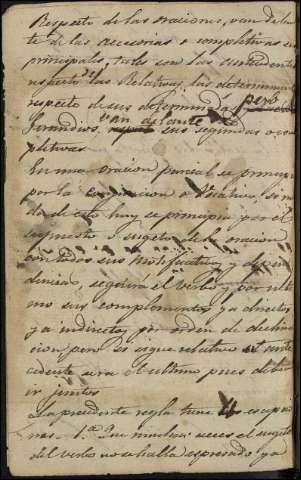 Respecto de las oraciones, van delan
te de las accesorias o completivas su
principales, tales son las antecedentes
respecto de las Relativas, las determinan
respecto de sus determinadas pero
Gerundios van delante sus segundas o com
pletivas.
En una oracion parcial se principia
por la conjuncion o relativo, si no
da de esto hay se principia por el
supuesto o sugeto de la oracion
con todos sus modificativos y depen
dencias, seguira el verbo, por ulti
mo sus complementos ya directos
ya indirectos por orden de declina
cion pero si sigue relativo el ante
cedente sera el ultimo pues deben
ir juntos
La precedente regla tiene 4 escepcio
nes. 1.ª Que muchas veces el sugeto
del verbo no se halla espresado ya